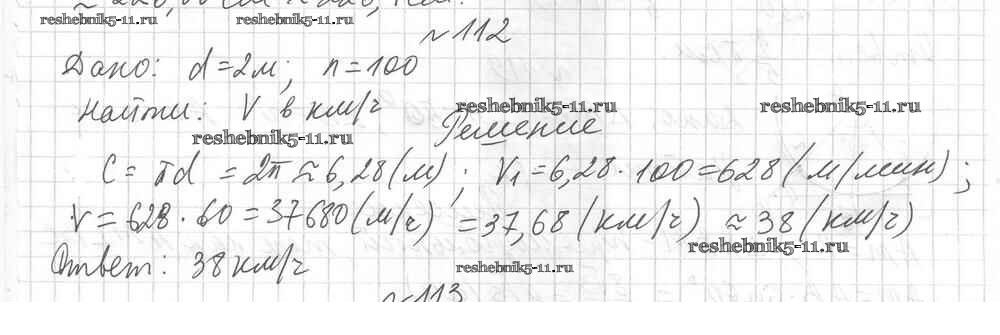 reshebnik5-11.ru reshebnik5-11.ru
№112
Дано: d=2м; n=100
Найти: V в км/ч reshebnik5-11.ru reshebnik5-11.ru
reshebnik5-11.ru Решение
C = πd = 2π ≈ 6,28 (м); V₁ = 6,28 · 100 = 628 (м/мин);
V = 628 · 60 = 37680 (м/ч) = 37,68 (км/ч) ≈ 38 (км/ч)
reshebnik5-11.ru
Ответ: 38 км/ч reshebnik5-11.ru
№113